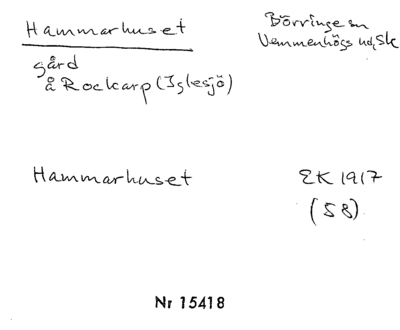 Hammarhuset
Börringe sn
Vemmenhögs hd, Sk
gård
å Rockarp (Iglesjö)
Hammarhuset
EK 1917
(58)
Nr 15418